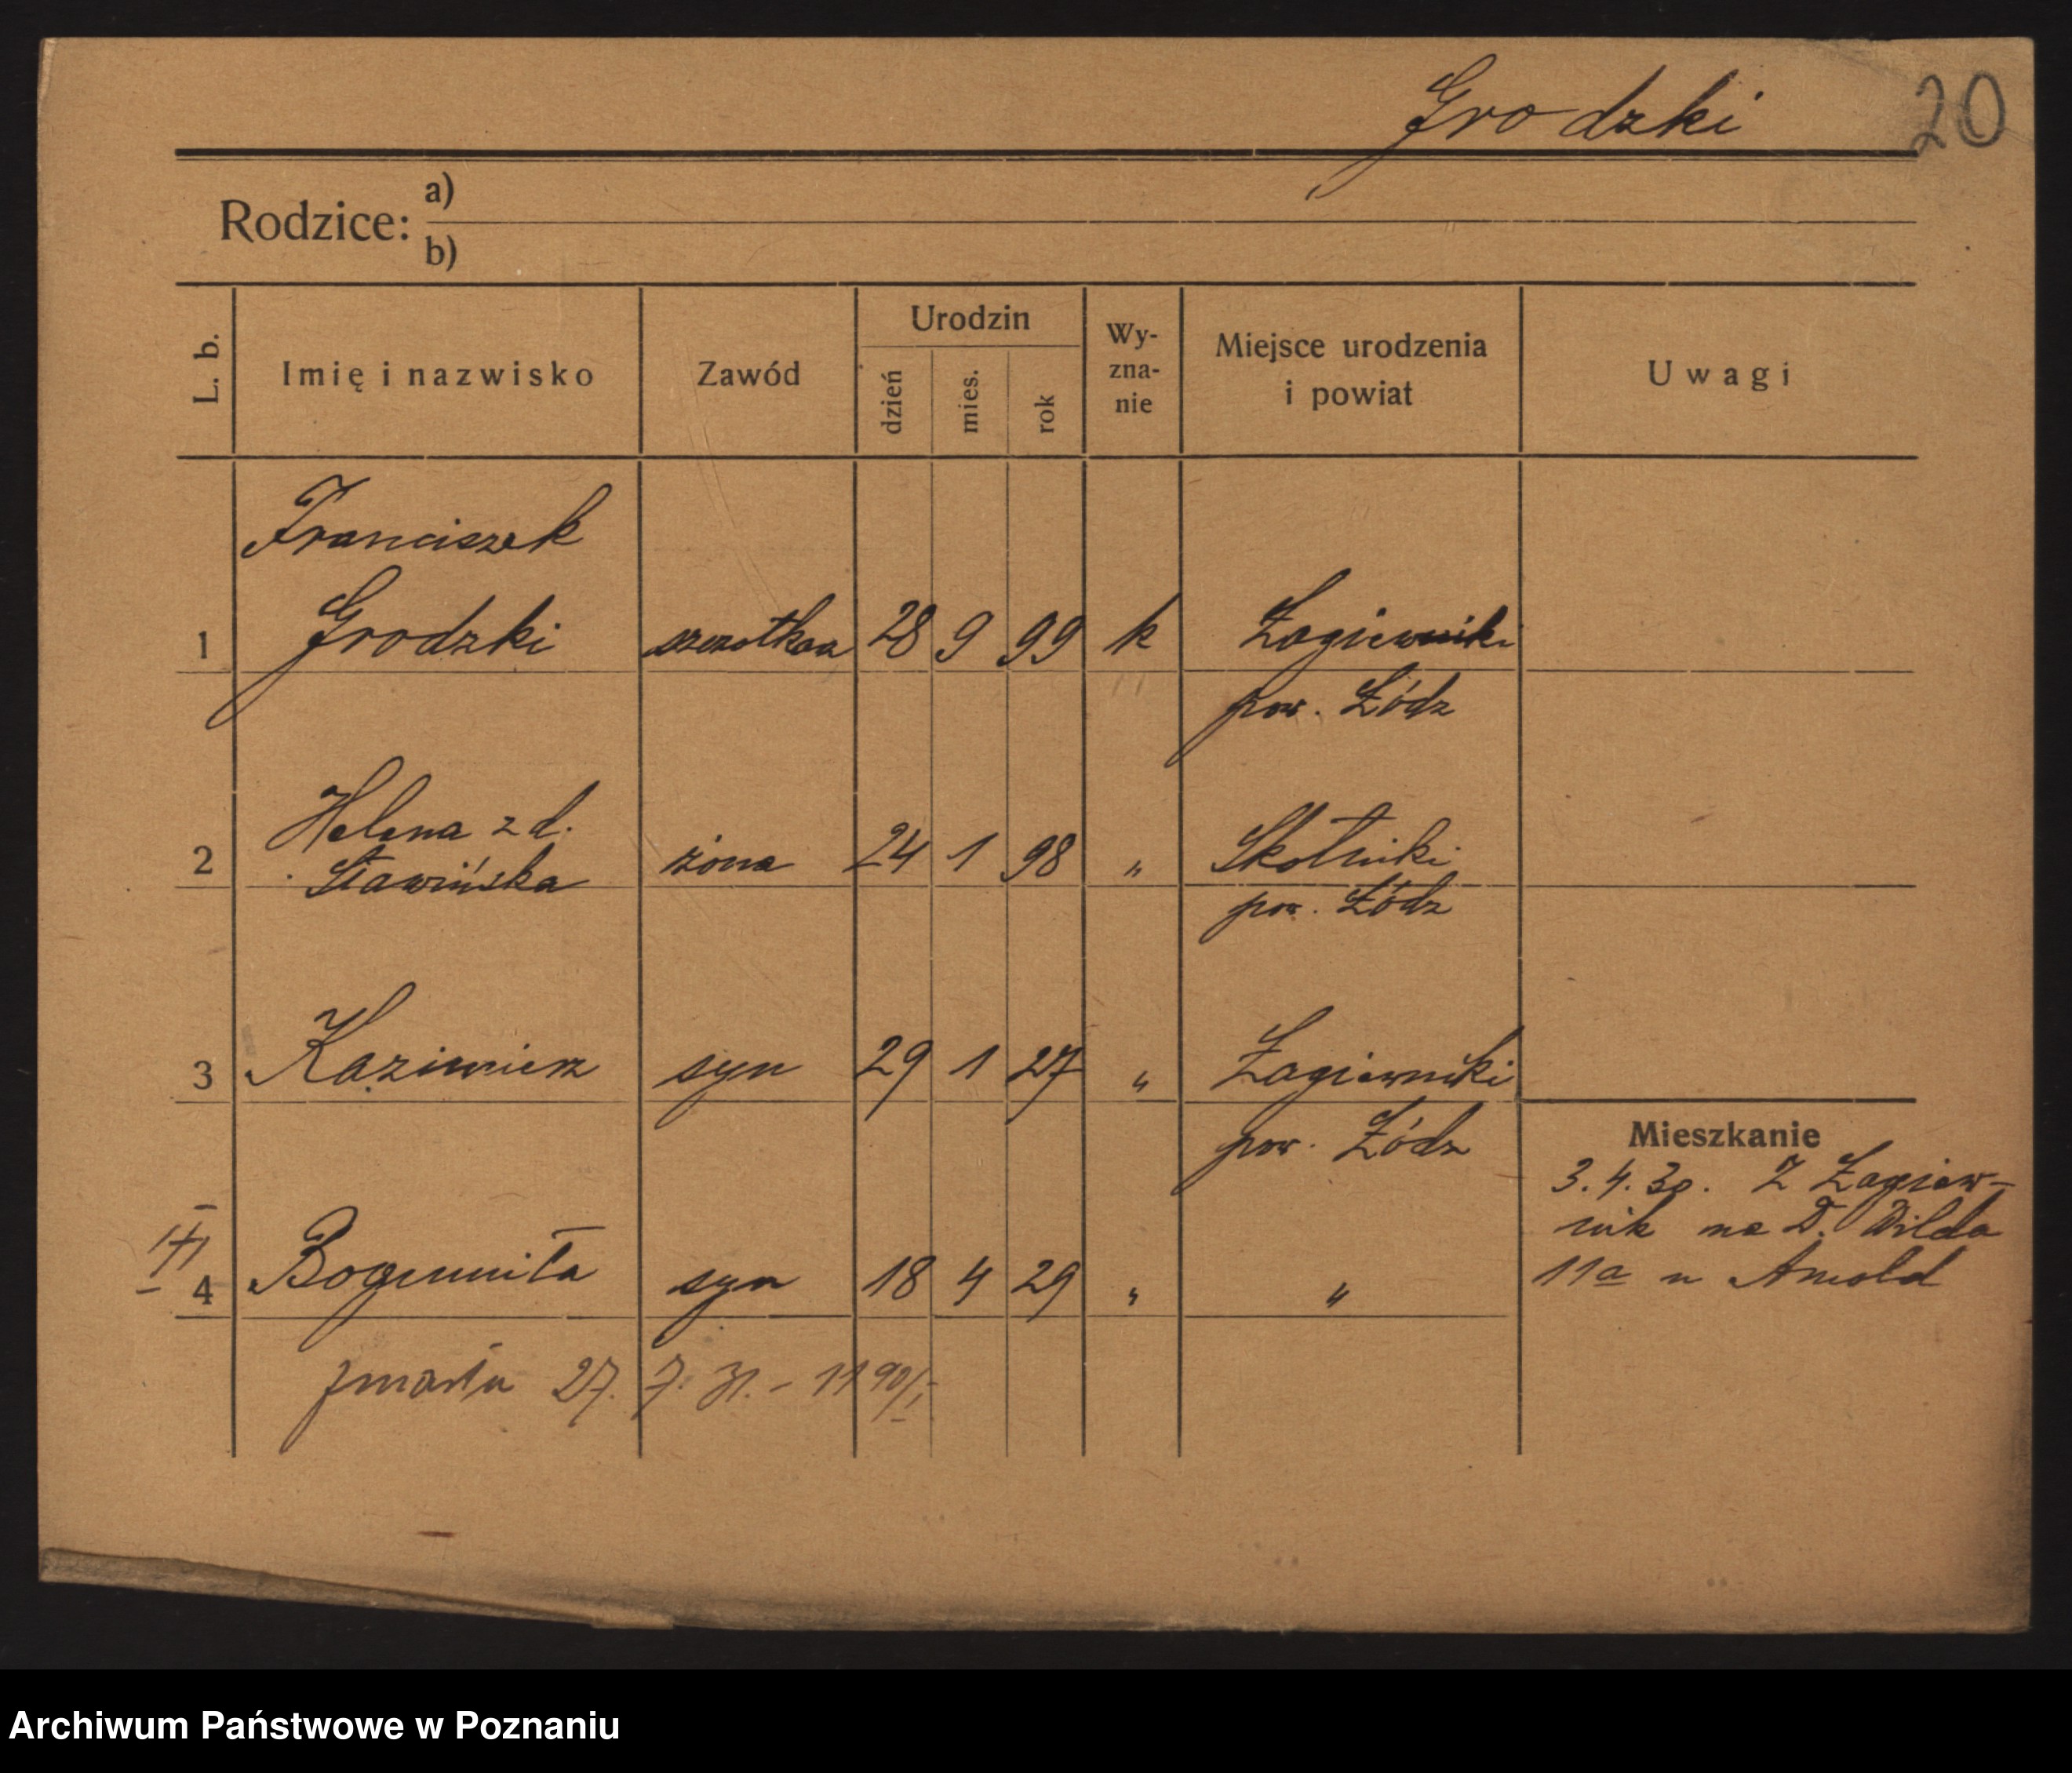 Grodzki
20
Rodzice:
a)
b)
L. b.
Imię i nazwisko
Zawód
Urodzin
dzień
mies.
rok
Wy-
zna-
nie
Miejsce urodzenia
i powiat
Uwagi
Franciszek
1 Grodzki szczotkarz 28 9 99 k Łagiewniki
pow. Łódz
Helena z d.
2 Sławińska żona 24 1 98 " Skotniki
pow. Łódz
3 Kazimierz syn 29 1 27 " Łagiewniki
pow. Łódz
Mieszkanie
3.4.30. Z Łagiew-
nik na D. Wilda
11a u Arnold
4 Bogumiła syn 18 4 29 " "
zmarła 27. 7. 31. -
Archiwum Państwowe w Poznaniu